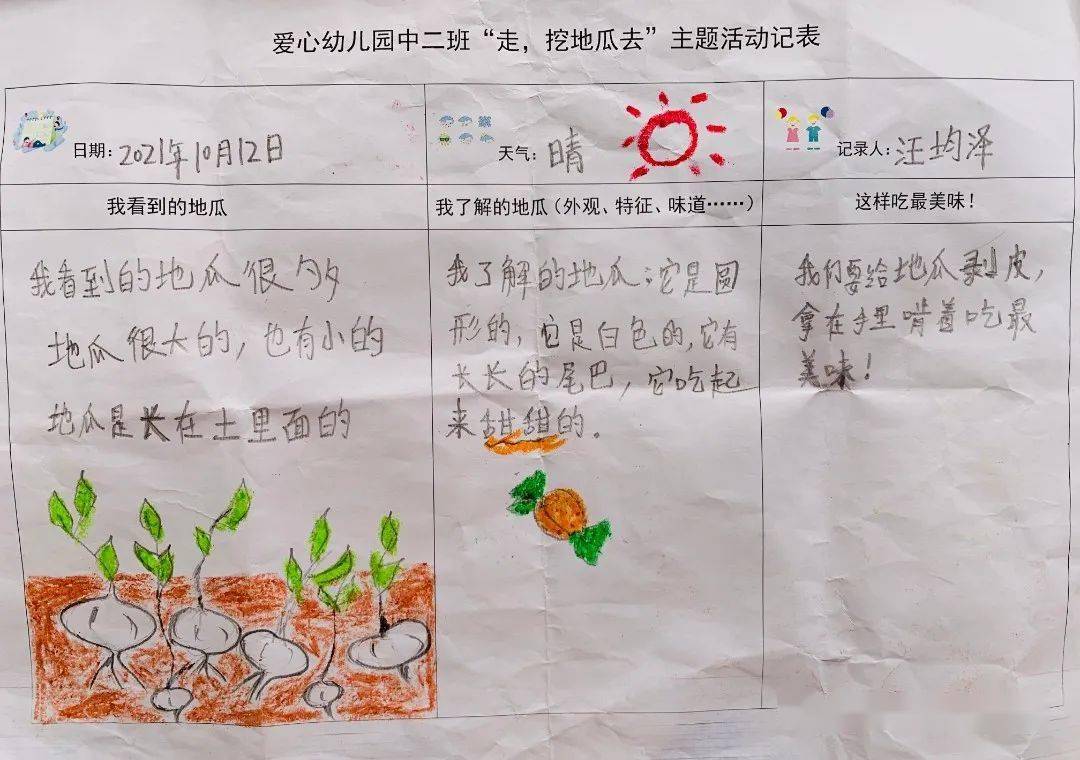 爱心幼儿园中二班“走，挖地瓜去”主题活动记表
日期：2021年10月12日
天气：晴
记录人：汪均泽
我看到的地瓜
我了解的地瓜（外观、特征、味道……）
这样吃最美味！
我看到的地瓜很多
地瓜很大的，也有小的
地瓜是长在土里面的
我了解的地瓜：它是圆
形的，它是白色的，它有
长长的尾巴，它吃起
来甜甜的。
我们要给地瓜剥皮，
拿在手里啃着吃最
美味！